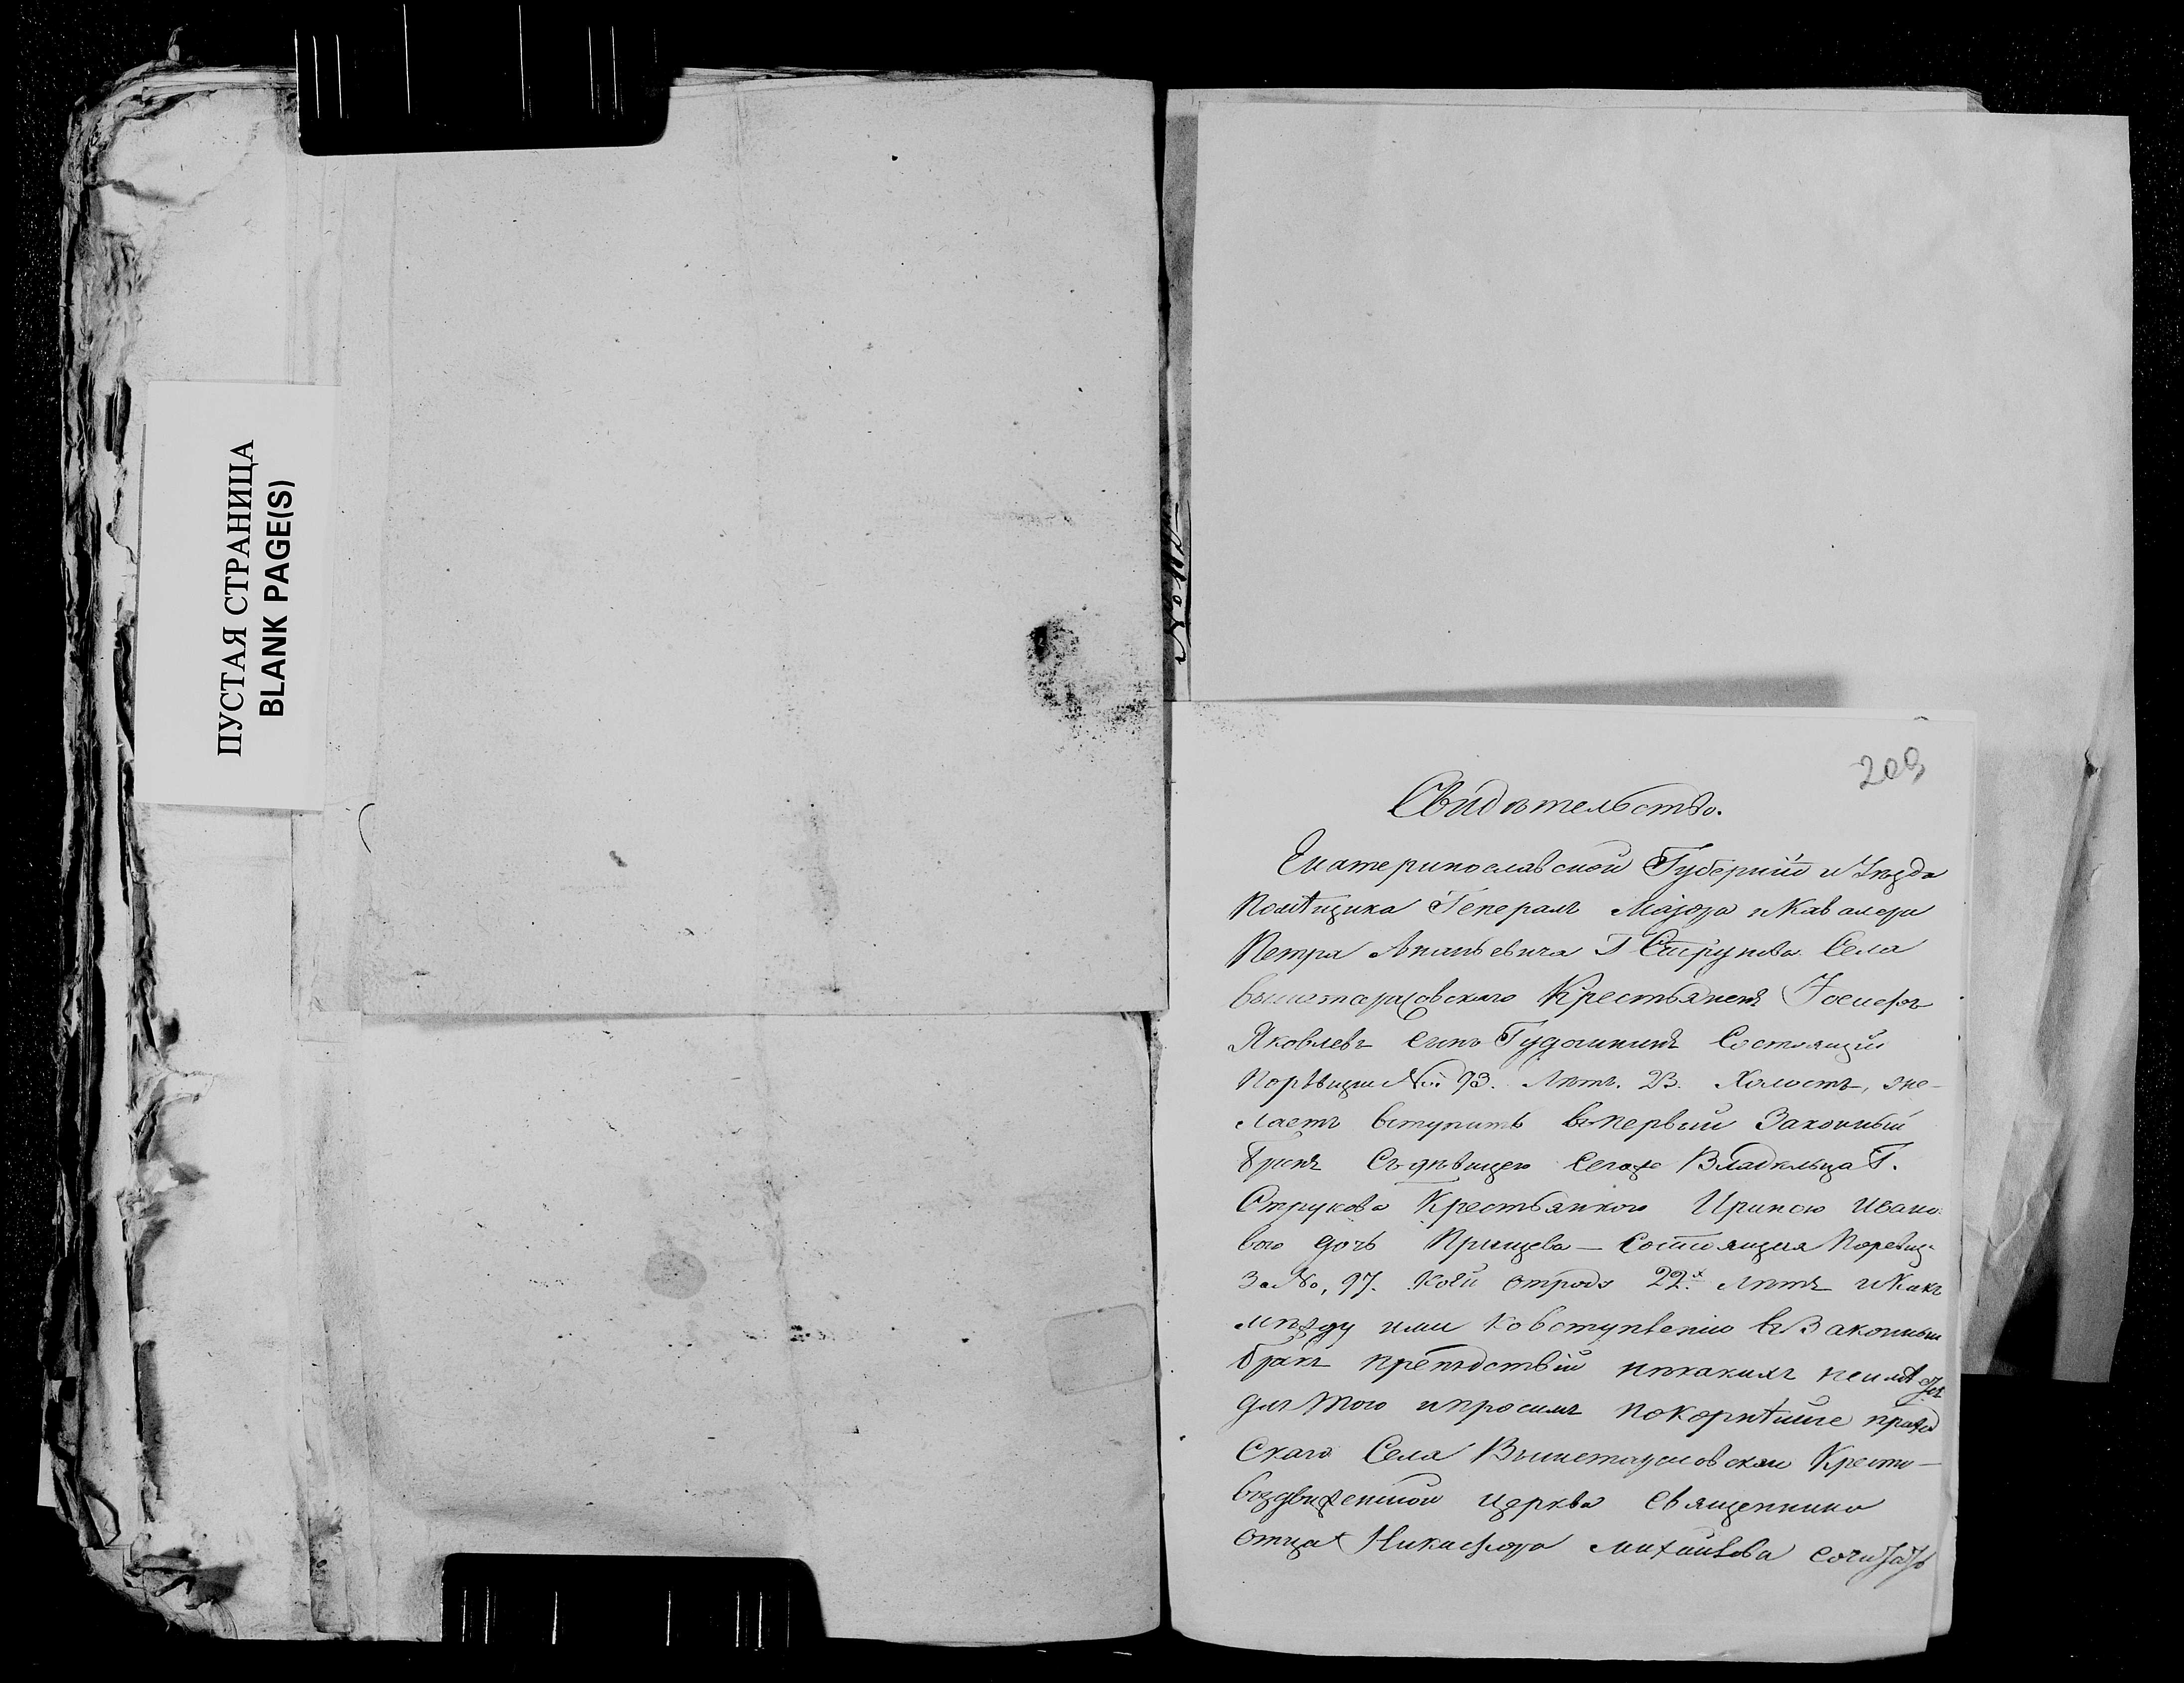 ПУСТАЯ СТРАНИЦА
BLANK PAGE(S)
209
Свидѣтельство.
Екатеринославской Губерніи и Уѣзда
Помѣщика Генералъ Маіора и Кавалера
Петра Ананьевича Г Струкова Села
Крестьянинъ Іосифъ
Яковлевъ сынъ Состоящій
Поревизіи No 93. Лѣтъ. 23. Холостъ, же-
лаетъ вступить въ первый Законный
бракъ Съ дѣвицею Сегоже Владѣльца Г.
Струкова Крестьянкою Ириною Ивано
вою дочь Прыщева — Состоящая Поревиз
За No, 97. коей отроду 22х лѣтъ и Какъ
между ими Ковступленію въ Законный
бракъ препѣдствій никакихъ неимѣ
для того и просимъ покорнѣише
Скаго Села Кресто-
воздвиженской церкви Священника
отца Никифора Михаилова сочитать